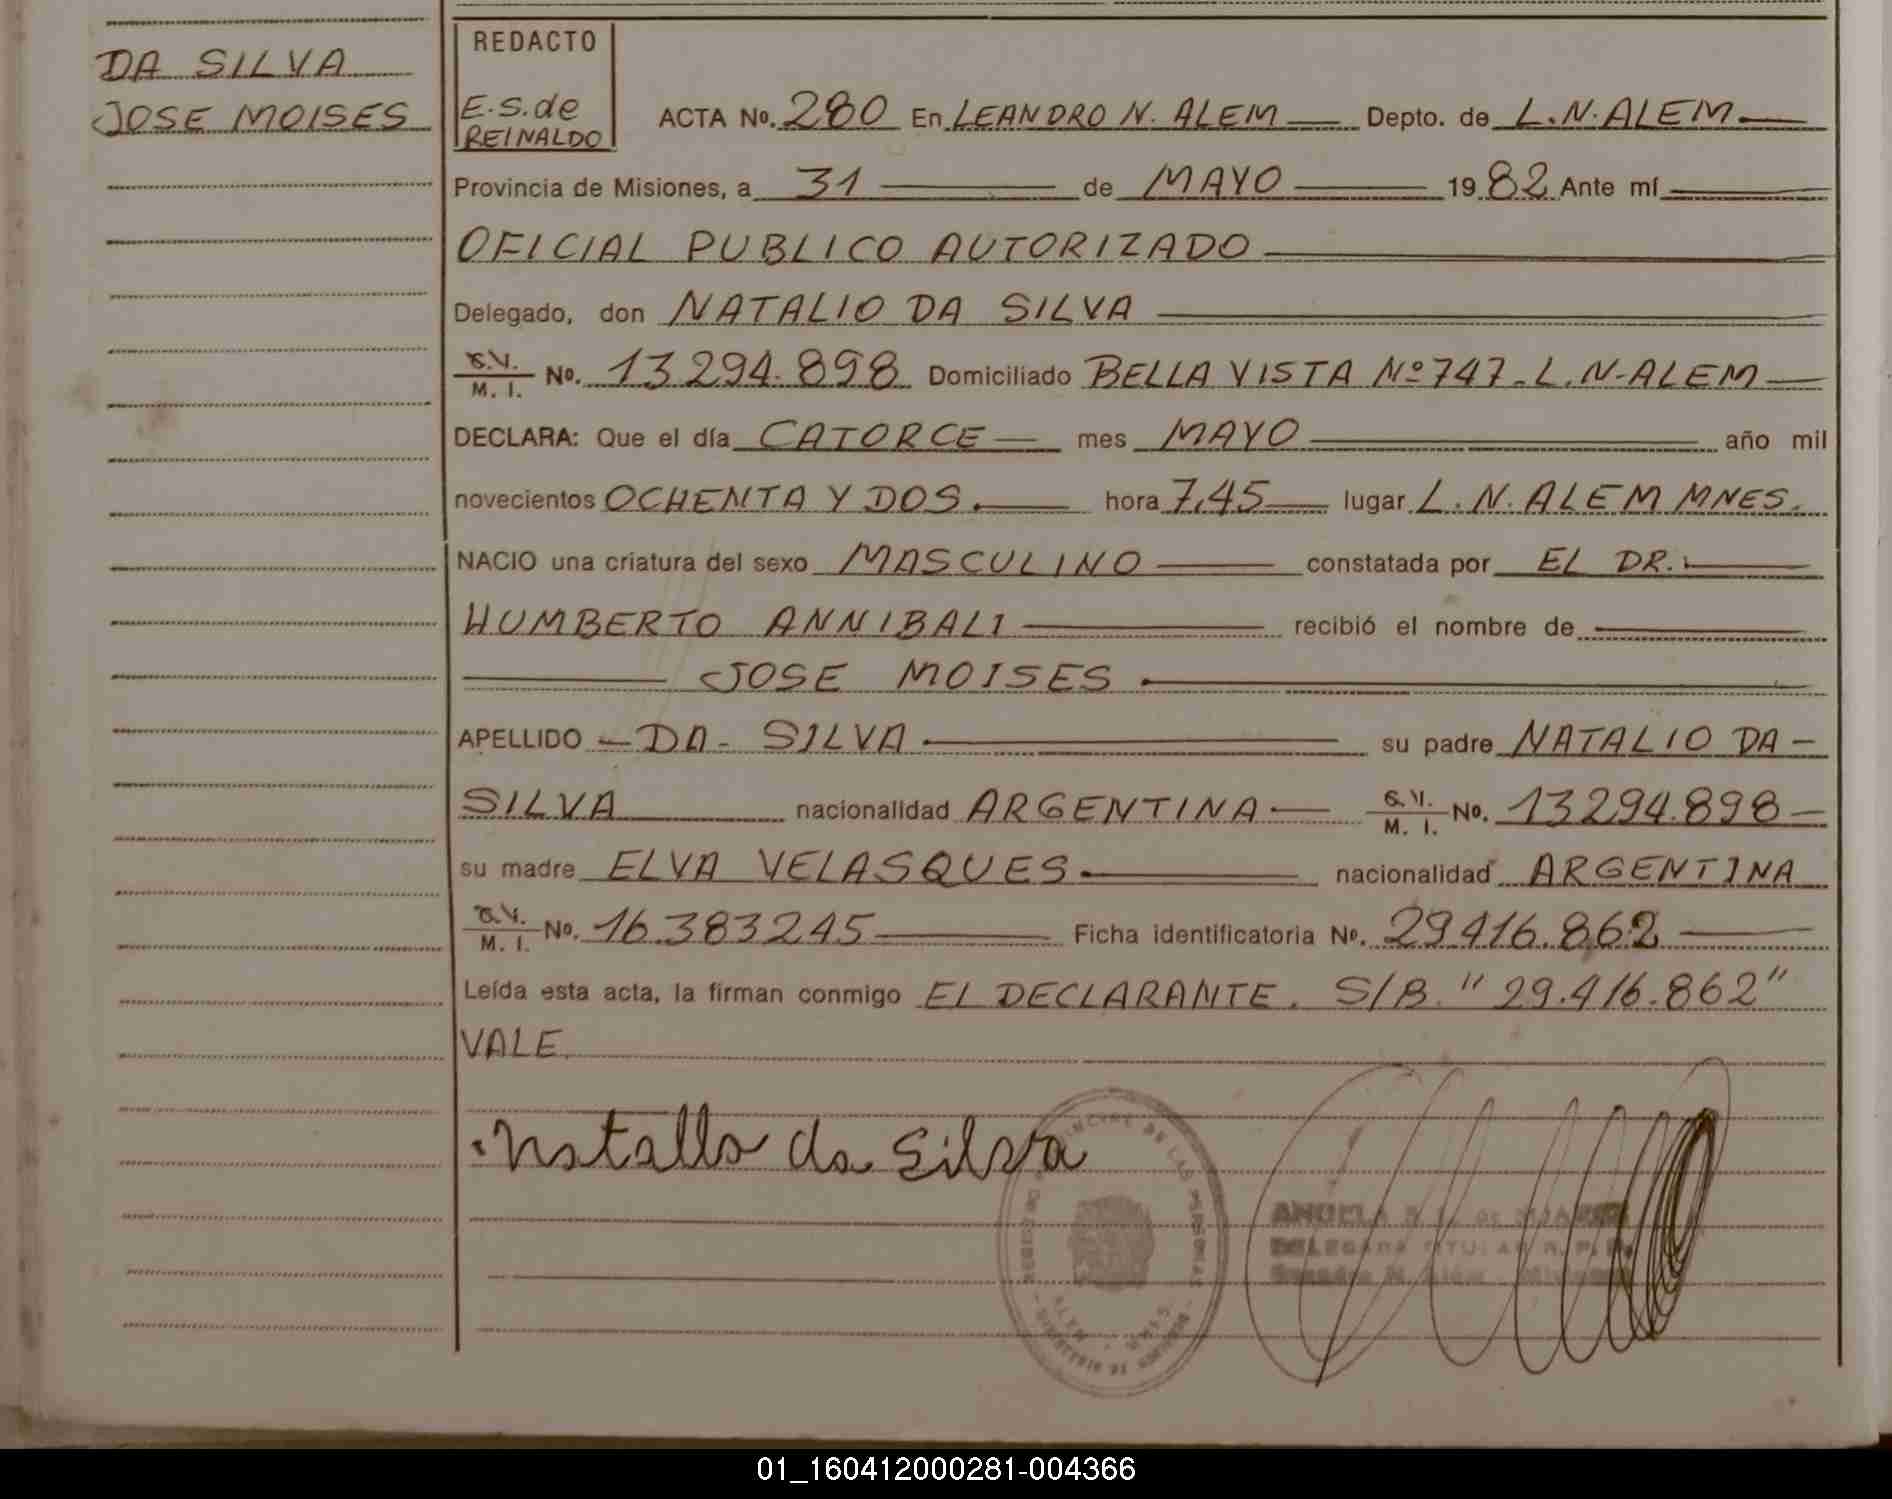 DA SILVA
JOSE MOISES
REDACTO
E.S. de
REINALDO
ACTA No. 280 En LEANDRO N. ALEM Depto. de L.N. ALEM
Provincia de Misiones, a 31 de MAYO 1982 Ante mí
OFICIAL PUBLICO AUTORIZADO
Delegado, don NATALIO DA SILVA
M. I. No. 13.294.898 Domiciliado BELLA VISTA Nº 747 - L. N. ALEM
DECLARA: Que el día CATORCE mes MAYO año mil
novecientos OCHENTA Y DOS. hora 7,45 lugar L. N. ALEM MNES.
NACIO una criatura del sexo MASCULINO constatada por EL DR.
HUMBERTO ANNIBALI recibió el nombre de
JOSE MOISES
APELLIDO - DA - SILVA su padre NATALIO DA -
SILVA nacionalidad ARGENTINA M. I. No. 13294.898 -
su madre ELVA VELASQUES nacionalidad ARGENTINA
M. I. No. 16.383245 Ficha identificatoria No. 29.416.862
Leída esta acta, la firman conmigo EL DECLARANTE. S/B. "29.416.862"
VALE.
Natalio da Silva
DE LAS PERSONAS
DELEGADA TITULAR R. P. P.
01_160412000281-004366